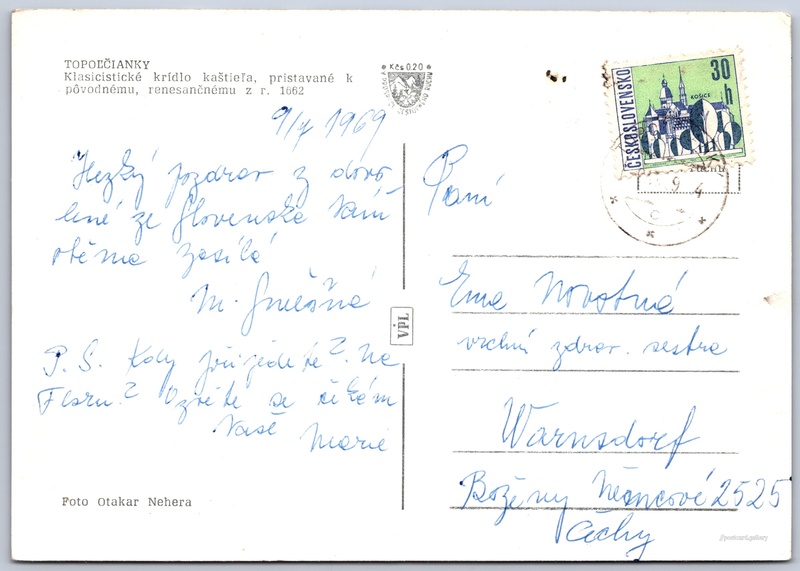 TOPOĽČIANKY
Klasicistické krídlo kaštieľa, pristavané k
pôvodnému, renesančnému z r. 1662
Kčs 0.20
ČESKOSLOVENSKO
30 h
KOŠICE
9/7 1969
Hezký pozdrav z dovo-
lené ze Slovenska Vám
oběma zasílá
M. Směšná
P.S. Kdy přijedete? Na
Floru? Ozvěte se čekám
Vaše Marie
Paní
Ema Novotná
vrchní zdrav. sestra
Warnsdorf
Boženy Němcové 2525
Čechy
VPL
Foto Otakar Nehera
//postcard.gallery